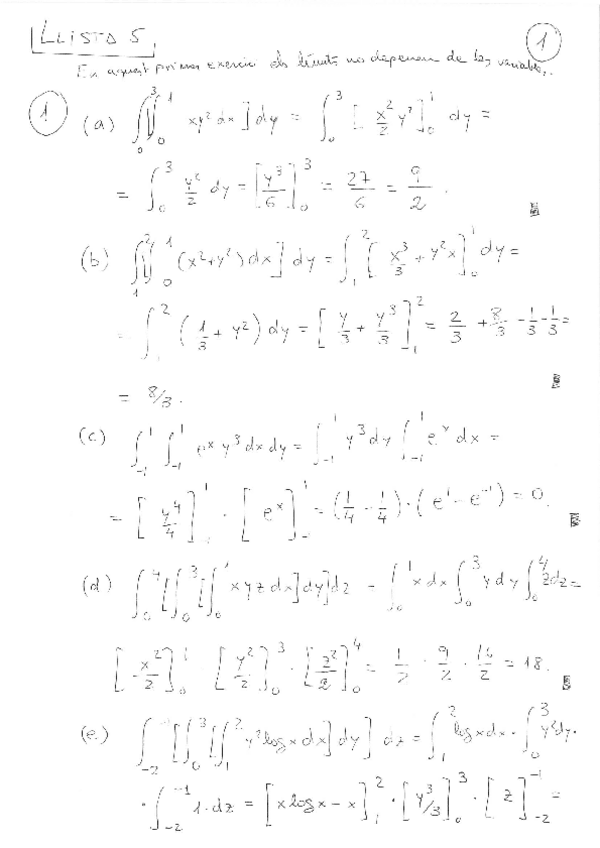 LLISTA 5. 1
En aquest primer exercici els límits no depenen de les variables.
1 (a) ∫₀³ [∫₀¹ xy² dx] dy = ∫₀³ [x²/2 y²]₀¹ dy =
= ∫₀³ y²/2 dy = [y³/6]₀³ = 27/6 = 9/2.
(b) ∫₁² [∫₀¹ (x²+y²) dx] dy = ∫₁² [x³/3 + y²x]₀¹ dy =
= ∫₁² (1/3 + y²) dy = [y/3 + y³/3]₁² = 2/3 + 8/3 - 1/3 - 1/3 =
= 8/3.
(c) ∫₋₁¹ ∫₋₁¹ eˣ y³ dx dy = ∫₋₁¹ y³ dy ∫₋₁¹ eˣ dx =
= [y⁴/4]₋₁¹ · [eˣ]₋₁¹ = (1/4 - 1/4) · (e¹ - e⁻¹) = 0.
(d) ∫₀⁴ [∫₀³ [∫₀¹ xyz dx] dy] dz = ∫₀¹ x dx ∫₀³ y dy ∫₀⁴ z dz =
[x²/2]₀¹ · [y²/2]₀³ · [z²/2]₀⁴ = 1/2 · 9/2 · 16/2 = 18.
(e) ∫₋₂⁻¹ [∫₀³ [∫₁² y² log x dx] dy] dz = ∫₁² log x dx · ∫₀³ y² dy ·
· ∫₋₂⁻¹ 1·dz = [x log x - x]₁² · [y³/3]₀³ · [z]₋₂⁻¹ =